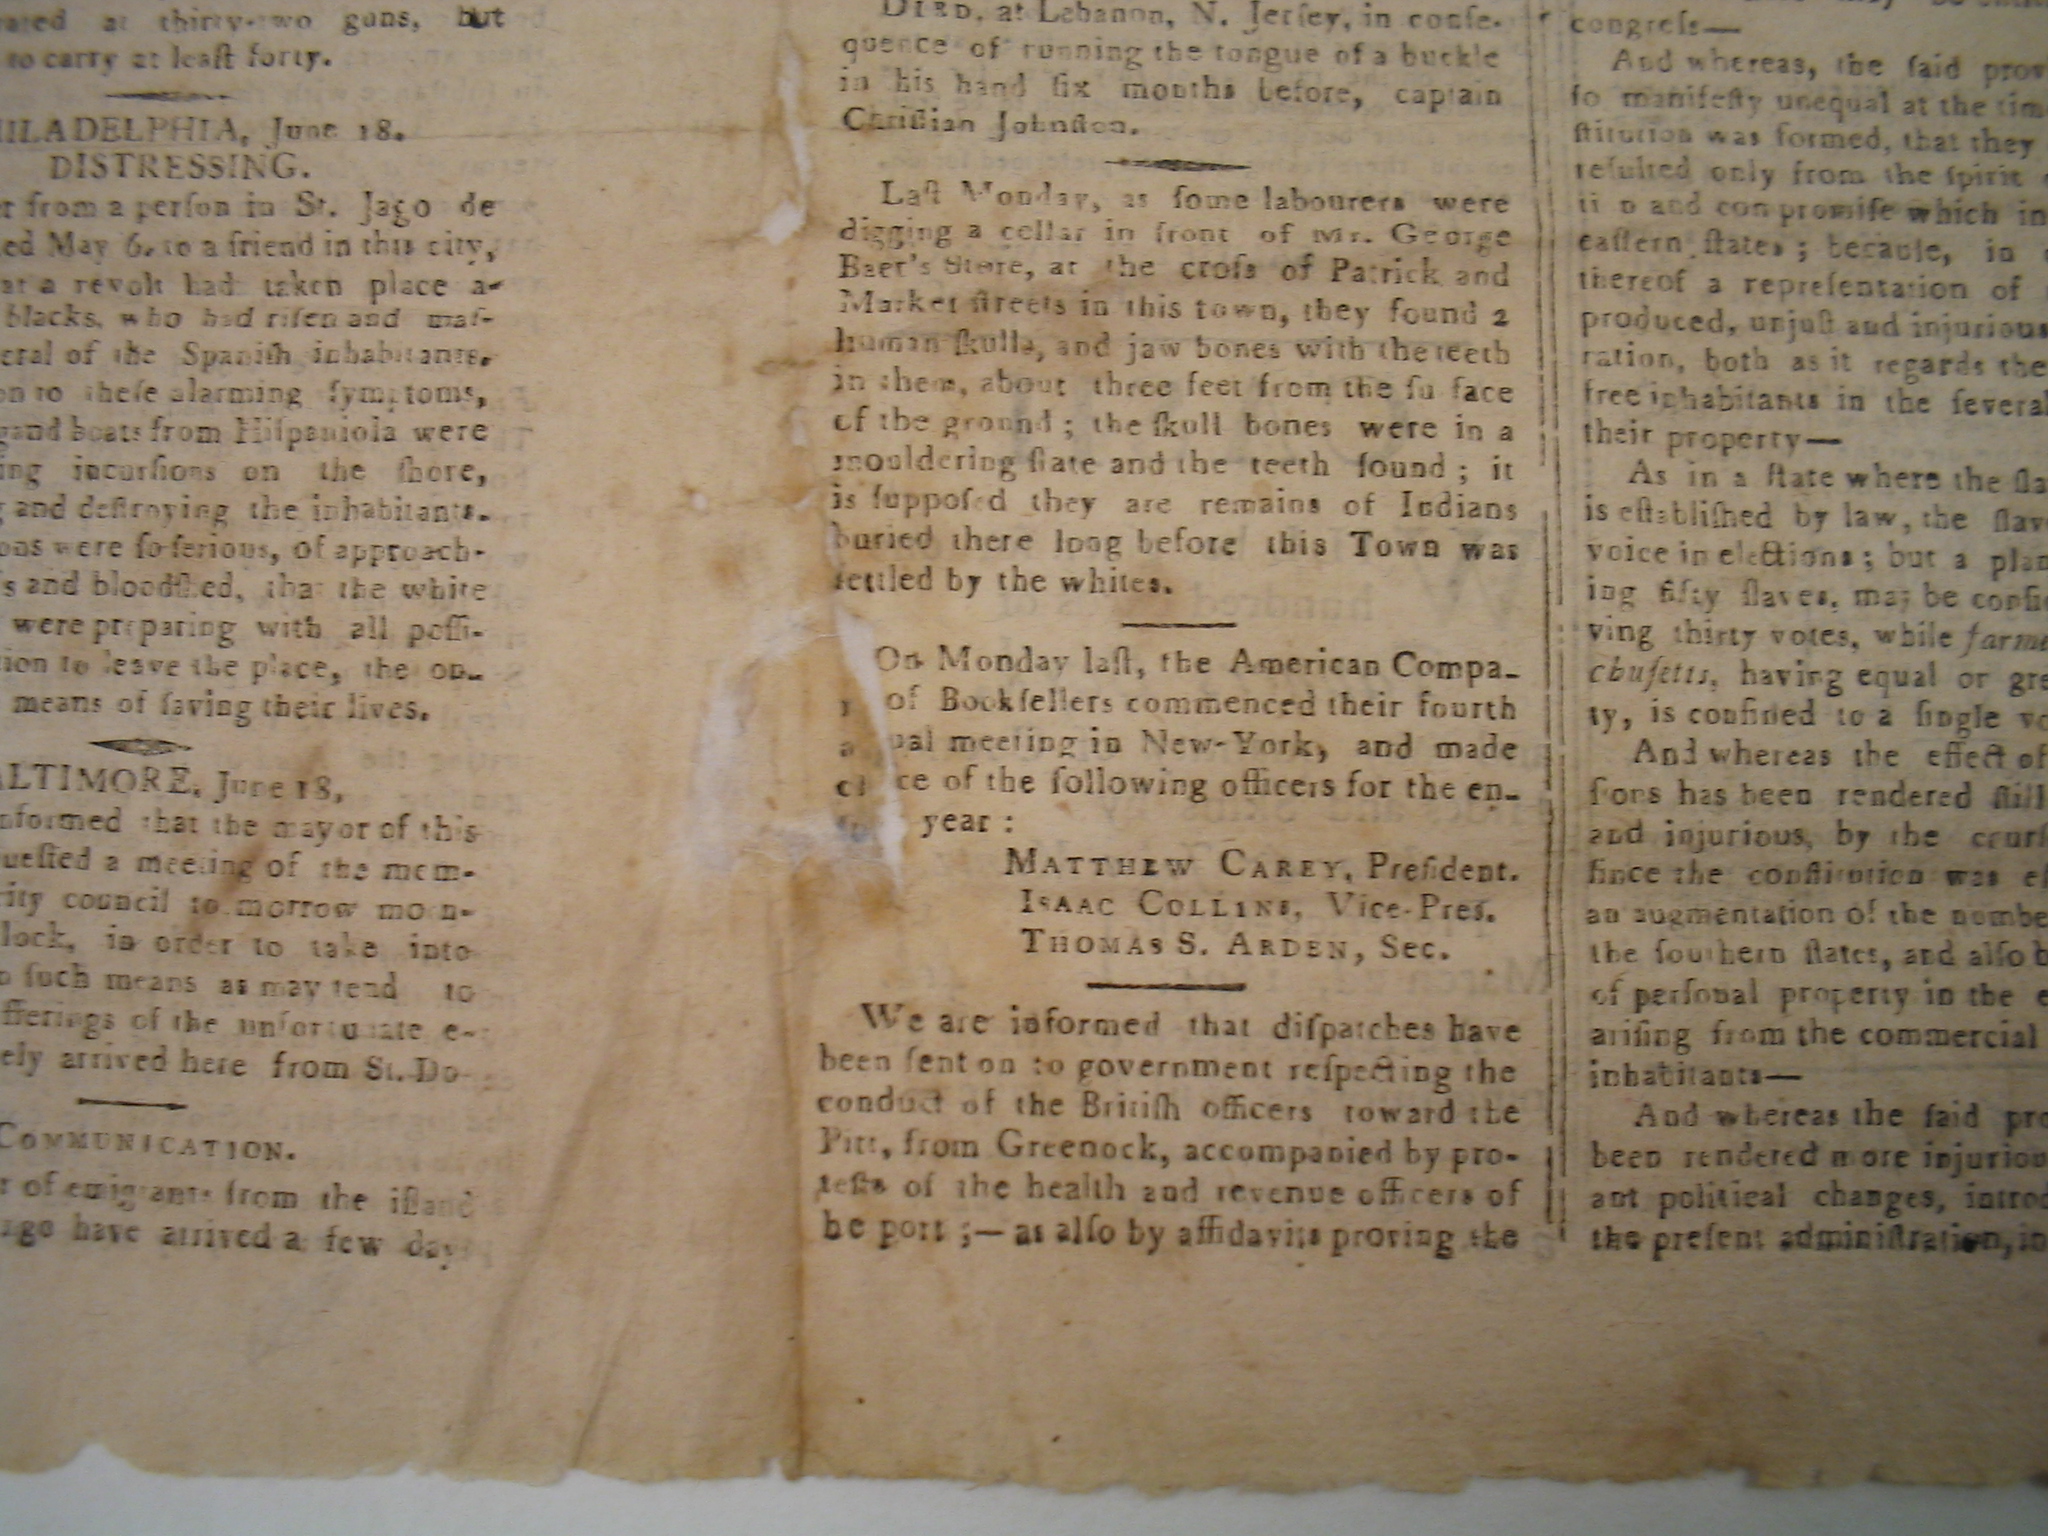 rated at thirty-two guns, but
to carry at leaſt forty.
HILADELPHIA, June 18.
DISTRESSING.
er from a perſon in St. Jago de
ed May 6. to a friend in this city,
at a revolt had taken place a-
blacks, who had riſen and maſ-
eral of the Spaniſh inhabitants.
on to theſe alarming ſymptoms,
gand boats from Hiſpaniola were
ing incurſions on the ſhore,
g and deſtroying the inhabitants.
ons were ſo ſerious, of approach-
s and bloodſhed, that the white
were preparing with all poſſi-
tion to leave the place, the on-
means of ſaving their lives.
ALTIMORE, June 18,
nformed that the mayor of this
ueſted a meeting of the mem-
city council to morrow morn-
lock, in order to take into
n ſuch means as may tend to
fferings of the unfortunate e-
ely arrived here from St. Do-
COMMUNICATION.
r of emigrants from the iſland
ago have arrived a few day
DIED, at Lebanon, N. Jerſey, in conſe-
quence of running the tongue of a buckle
in his hand ſix months before, captain
Chriſtian Johnſton.
Laſt Monday, as ſome labourers were
digging a cellar in front of Mr. George
Baer's Store, at the croſs of Patrick and
Market ſtreets in this town, they found 2
human ſkulls, and jaw bones with the teeth
in them, about three feet from the ſu face
of the ground ; the ſkull bones were in a
mouldering ſtate and the teeth ſound ; it
is ſuppoſed they are remains of Indians
buried there long before this Town was
ſettled by the whites.
On Monday laſt, the American Compa-
of Bookſellers commenced their fourth
ual meeting in New-York, and made
ch ce of the following officers for the en-
year :
MATTHEW CAREY, Preſident.
ISAAC COLLINS, Vice-Preſ.
THOMAS S. ARDEN, Sec.
We are informed that diſpatches have
been ſent on to government reſpecting the
conduct of the Britiſh officers toward the
Pitt, from Greenock, accompanied by pro-
teſts of the health and revenue officers of
he port ;— as alſo by affidavits proving the
congreſs—
And whereas, the ſaid prov
ſo manifeſtly unequal at the tim
ſtitution was formed, that they
reſulted only from the ſpirit
ti n and compromiſe which in
eaſtern ſtates ; becauſe, in
thereof a repreſentation of
produced, unjuſt and injurious
ration, both as it regards the
free inhabitants in the ſeveral
their property—
As in a ſtate where the ſla
is eſtabliſhed by law, the ſlav
voice in elections ; but a plan
ing fifty ſlaves, may be conſi
ving thirty votes, while farme
chuſetts, having equal or gre
ty, is confined to a ſingle vo
And whereas the effect of
ſions has been rendered ſtill
and injurious, by the courſ
ſince the conſtitution was e
an augmentation of the numbe
the ſouthern ſtates, and alſo b
of perſonal property in the e
ariſing from the commercial
inhabitants—
And whereas the ſaid pro
been rendered more injuriou
ant political changes, introd
the preſent adminiſtration, in